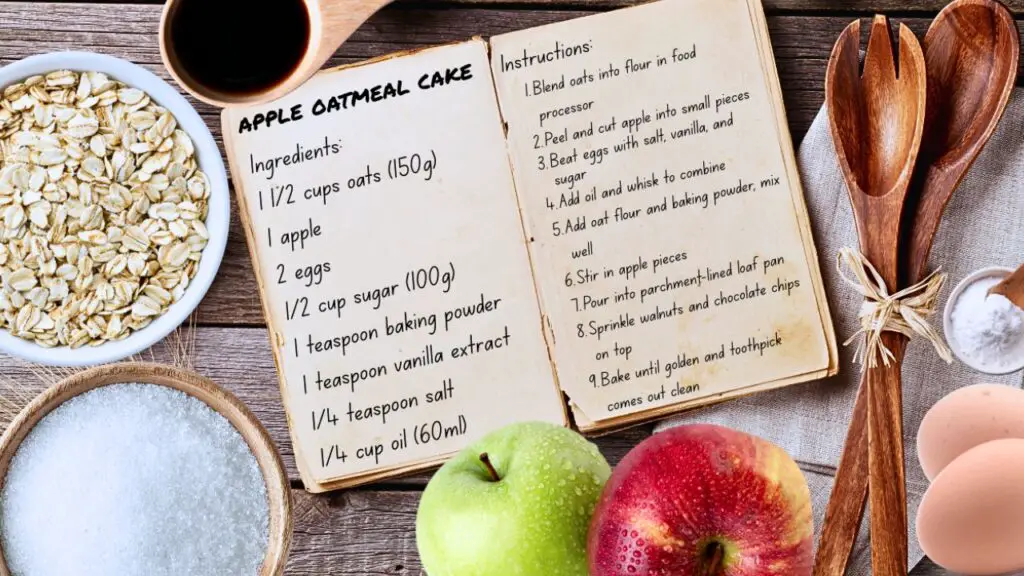 APPLE OATMEAL CAKE
Ingredients:
1 1/2 cups oats (150g)
1 apple
2 eggs
1/2 cup sugar (100g)
1 teaspoon baking powder
1 teaspoon vanilla extract
1/4 teaspoon salt
1/4 cup oil (60ml)
Instructions:
1.Blend oats into flour in food
processor
2.Peel and cut apple into small pieces
3.Beat eggs with salt, vanilla, and
sugar
4.Add oil and whisk to combine
5.Add oat flour and baking powder, mix
well
6.Stir in apple pieces
7.Pour into parchment-lined loaf pan
8.Sprinkle walnuts and chocolate chips
on top
9.Bake until golden and toothpick
comes out clean